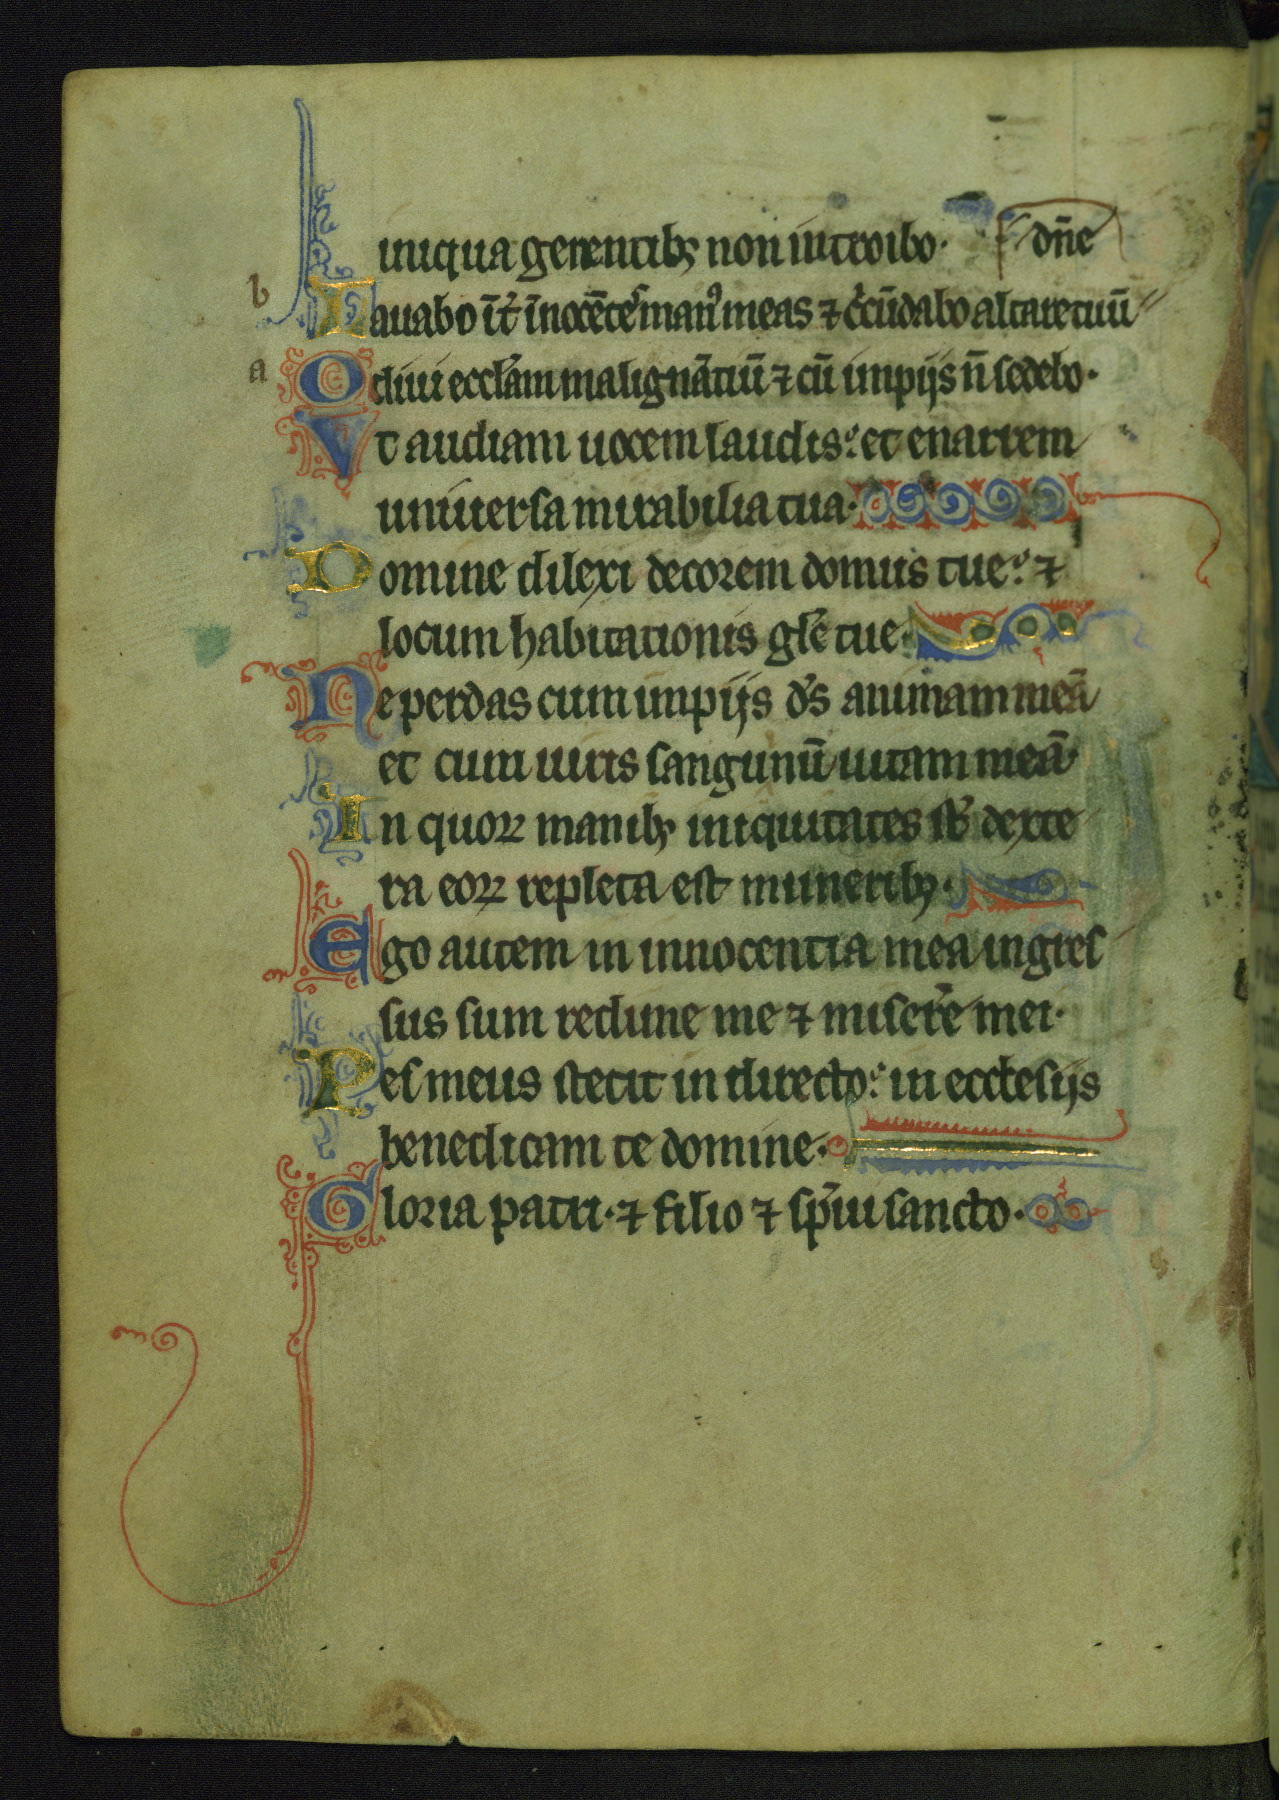 iniqua gerentibꝫ non introibo· dn̄e
b
Lauabo īt̄ īnocētes man᷒ meas ⁊ c̄cūdabo altare tuū
a
Odiui eccl̄am malignātiū ⁊ cū impijs n̄ sedebo·
Vt audiam uocem laudis: et enarrem
uniuersa mirabilia tua·
Domine dilexi decorem domus tue: ⁊
locum habitationis gl̄e tue·
Ne perdas cum impijs ds̄ animam meā
et cum uiris sanguinū uitam meā·
In quoꝝ manibꝫ iniquitates st̄ dexte
ra eoꝝ repleta est muneribꝫ·
Ego autem in innocentia mea ingres
sus sum redime me ⁊ miserere mei·
Pes meus stetit in directo: in ecclesijs
benedicam te domine·
Gloria patri· ⁊ filio ⁊ sp̄iui sancto·